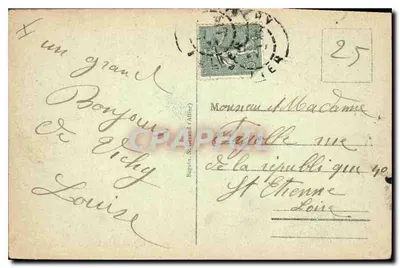 un grand
Bonjour
de Vichy
Louise
25
Monsieur et Madame
Fayolle rue
de la république 40
St Etienne
Loire